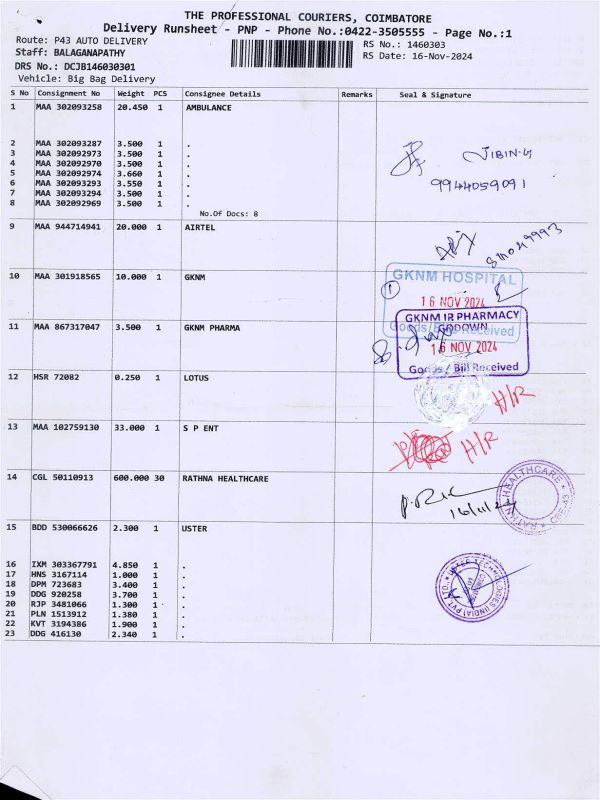 THE PROFESSIONAL COURIERS, COIMBATORE
Delivery Runsheet - PNP - Phone No.:0422-3505555 - Page No.:1
Route: P43 AUTO DELIVERY
RS No.: 1460303
Staff: BALAGANAPATHY
RS Date: 16-Nov-2024
DRS No.: DCJB146030301
Vehicle: Big Bag Delivery
S No Consignment No Weight PCS Consignee Details Remarks Seal & Signature
1 MAA 302093258 20.450 1 AMBULANCE
2 MAA 302093287 3.500 1 .
3 MAA 302092973 3.500 1 .
4 MAA 302092970 3.500 1 .
5 MAA 302092974 3.660 1 .
6 MAA 302093293 3.550 1 .
7 MAA 302093294 3.500 1 .
8 MAA 302092969 3.500 1 .
JIBIN
9944059091
No.Of Docs: 8
9 MAA 944714941 20.000 1 AIRTEL
10 MAA 301918565 10.000 1 GKNM
GKNM HOSPITAL
1
16 NOV 2024
Goods/Bill Received
11 MAA 867317047 3.500 1 GKNM PHARMA
GKNM IP PHARMACY
GODOWN
16 NOV 2024
Goods / Bill Received
12 HSR 72082 0.250 1 LOTUS
H/R
13 MAA 102759130 33.000 1 S P ENT
H/R
14 CGL 50110913 600.000 30 RATHNA HEALTHCARE
16/11/24
RATHNA HEALTHCARE
CBE-43
15 BDD 530066626 2.300 1 USTER
16 IXM 303367791 4.850 1 .
17 HNS 3167114 1.000 1 .
18 DPM 723683 3.400 1 .
19 DDG 920258 3.700 1 .
20 RJP 3481066 1.300 1 .
21 PLN 1513912 1.380 1 .
22 KVT 3194386 1.900 1 .
23 DDG 416130 2.340 1 .
USTER TECHNOLOGIES (INDIA) PVT. LTD.